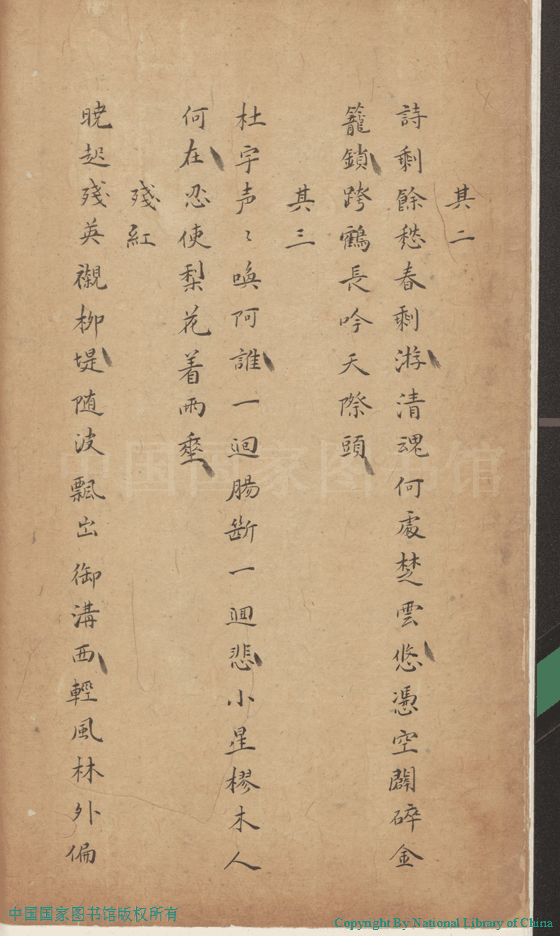 其二
詩剩餘愁春剩游清魂何處楚雲悠憑空闢碎金
籠鎖跨鶴長吟天際頭
其三
杜宇声〻喚阿誰一迴腸斷一迴悲小星樛木人
何在忍使梨花着雨垂
殘紅
曉起殘英襯柳堤随波飄出御溝西輕風林外偏
中国国家图书馆
中国国家图书馆版权所有
Copyright By National Library of China